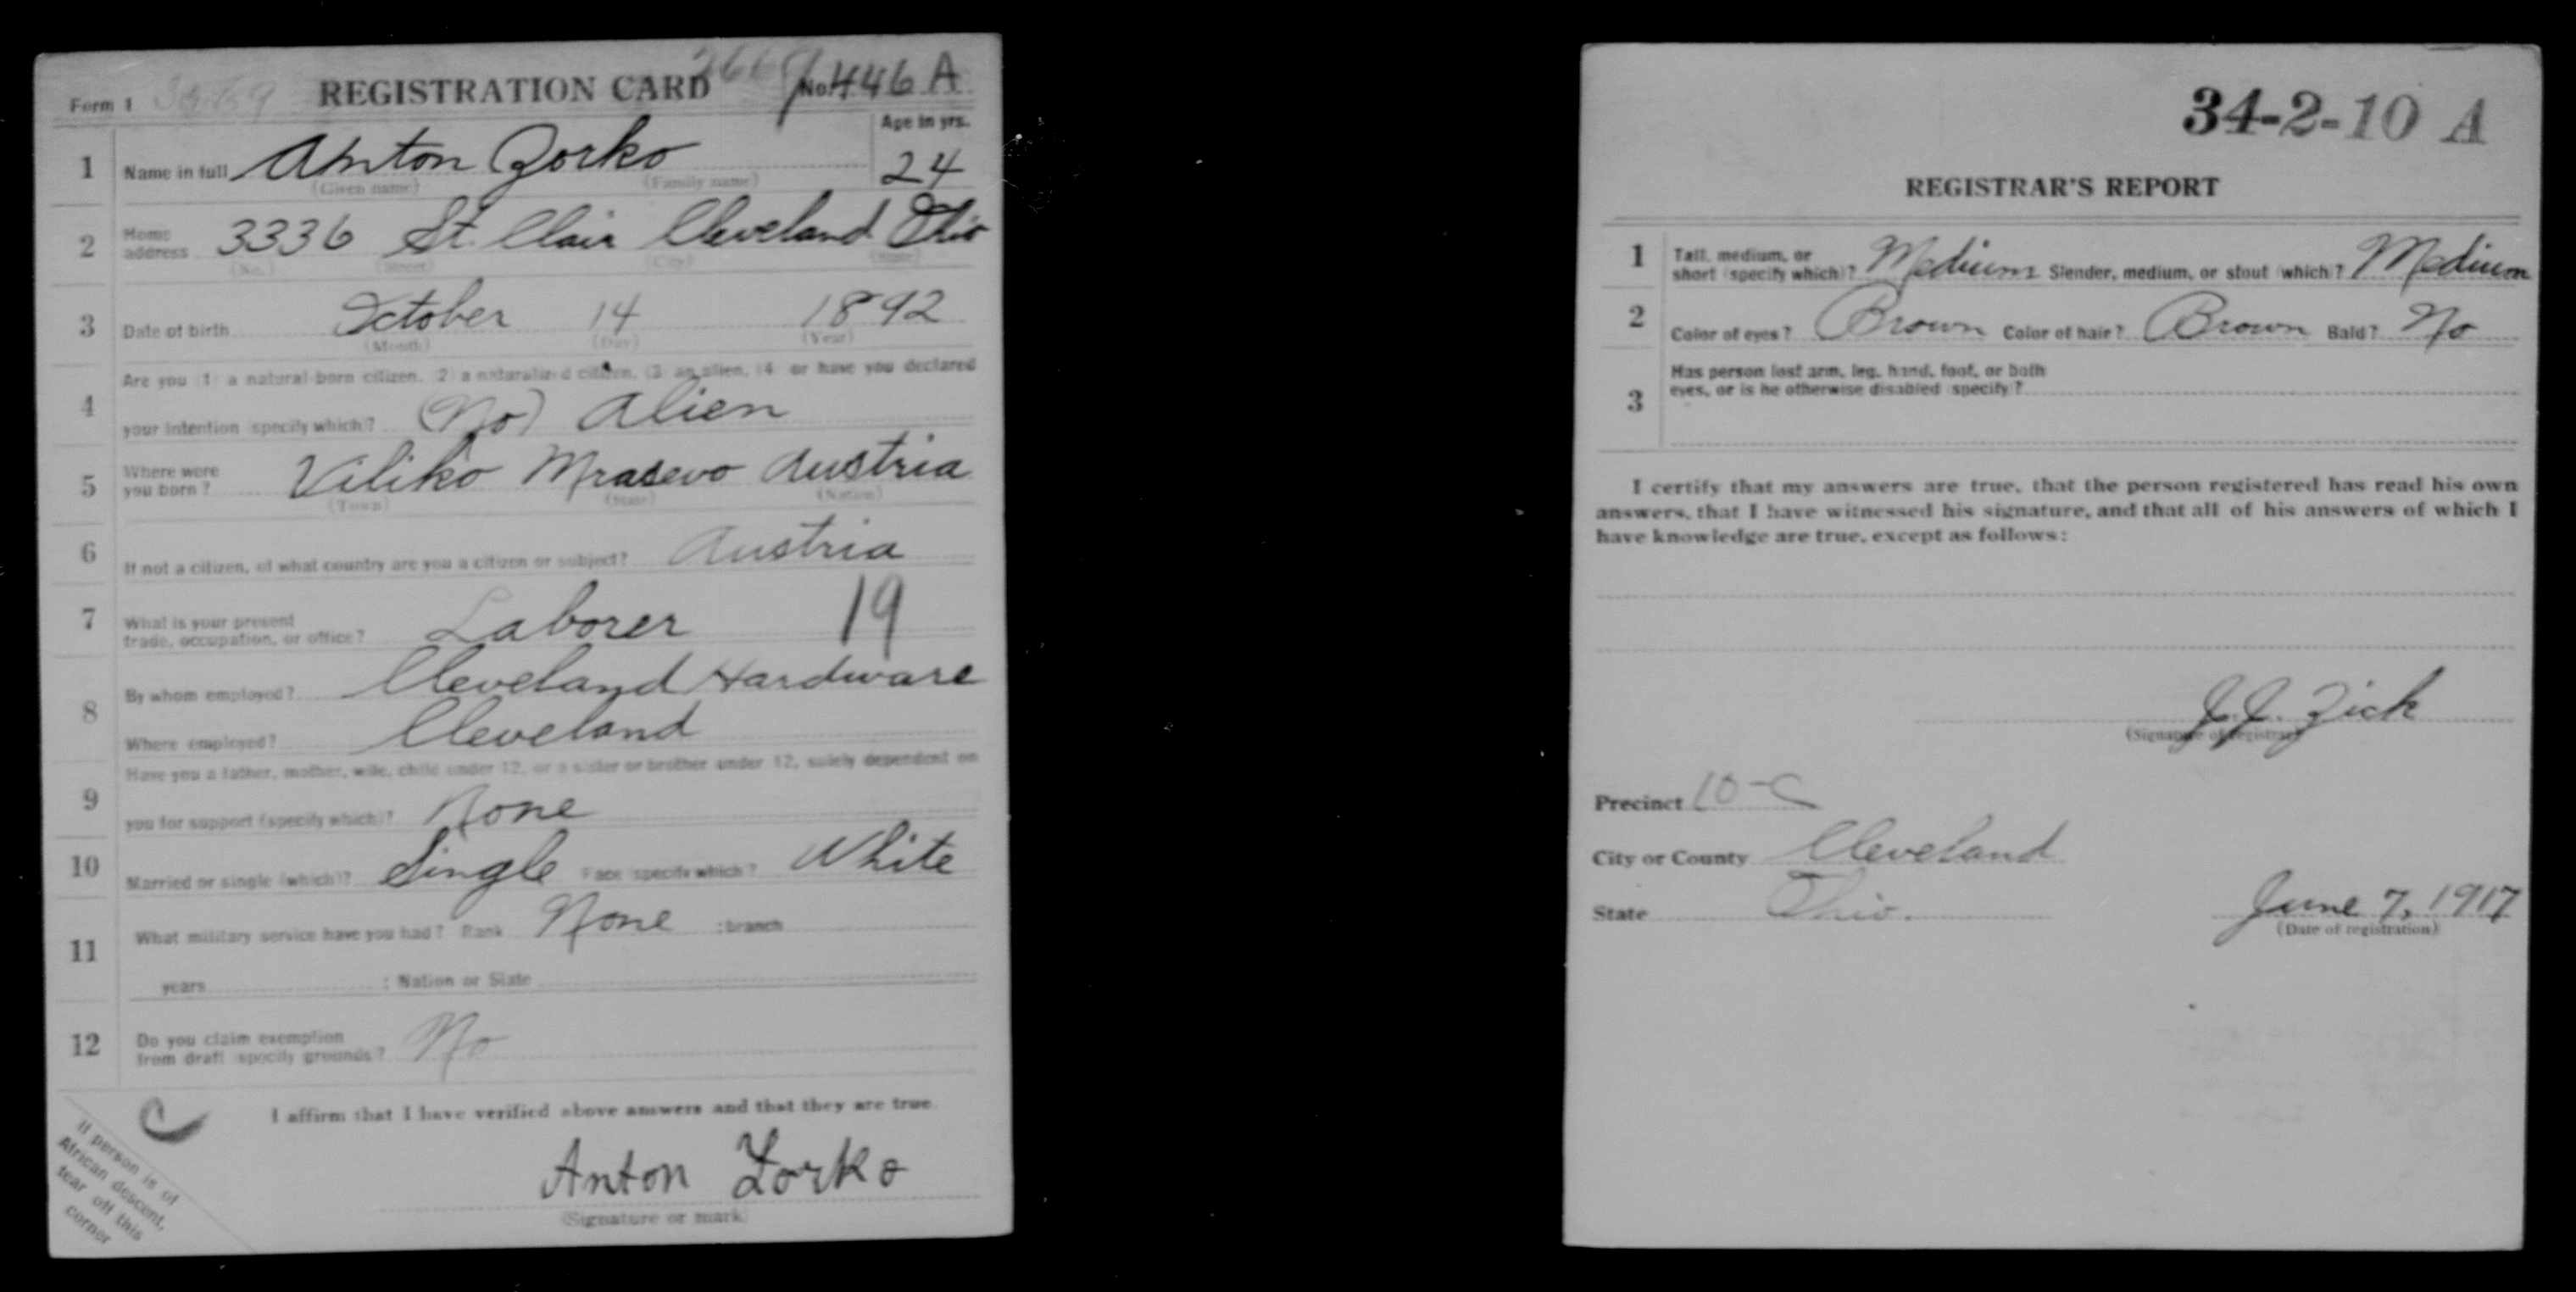 Form 1 REGISTRATION CARD No. 446 A
1 Name in full Anton Zorko Age in yrs. 24
(Given name) (Family name)
2 Home address 3336 St. Clair Cleveland Ohio
(No.) (Street) (City) (State)
3 Date of birth October 14 1892
(Month) (Day) (Year)
Are you (1) a natural-born citizen, (2) a naturalized citizen, (3) an alien, (4) or have you declared
4 your intention (specify which)? (No) Alien
5 Where were you born? Viliko Mrasevo Austria
(Town) (State) (Nation)
6 If not a citizen, of what country are you a citizen or subject? Austria
7 What is your present trade, occupation, or office? Laborer 19
8 By whom employed? Cleveland Hardware
Where employed? Cleveland
Have you a father, mother, wife, child under 12, or a sister or brother under 12, solely dependent on
9 you for support (specify which)? None
10 Married or single (which)? Single Race (specify which)? White
11 What military service have you had? Rank None ; branch
years ; Nation or State
12 Do you claim exemption from draft (specify grounds)? No
I affirm that I have verified above answers and that they are true.
Anton Zorko
(Signature or mark)
If person is of
African descent,
tear off this
corner
34-2-10 A
REGISTRAR'S REPORT
1 Tall, medium, or short (specify which)? Medium Slender, medium, or stout (which)? Medium
2 Color of eyes? Brown Color of hair? Brown Bald? No
3 Has person lost arm, leg, hand, foot, or both
eyes, or is he otherwise disabled (specify)?
I certify that my answers are true, that the person registered has read his own
answers, that I have witnessed his signature, and that all of his answers of which I
have knowledge are true, except as follows:
J.J. Zick
(Signature of registrar)
Precinct 10-C
City or County Cleveland
State Ohio.
June 7, 1917
(Date of registration)